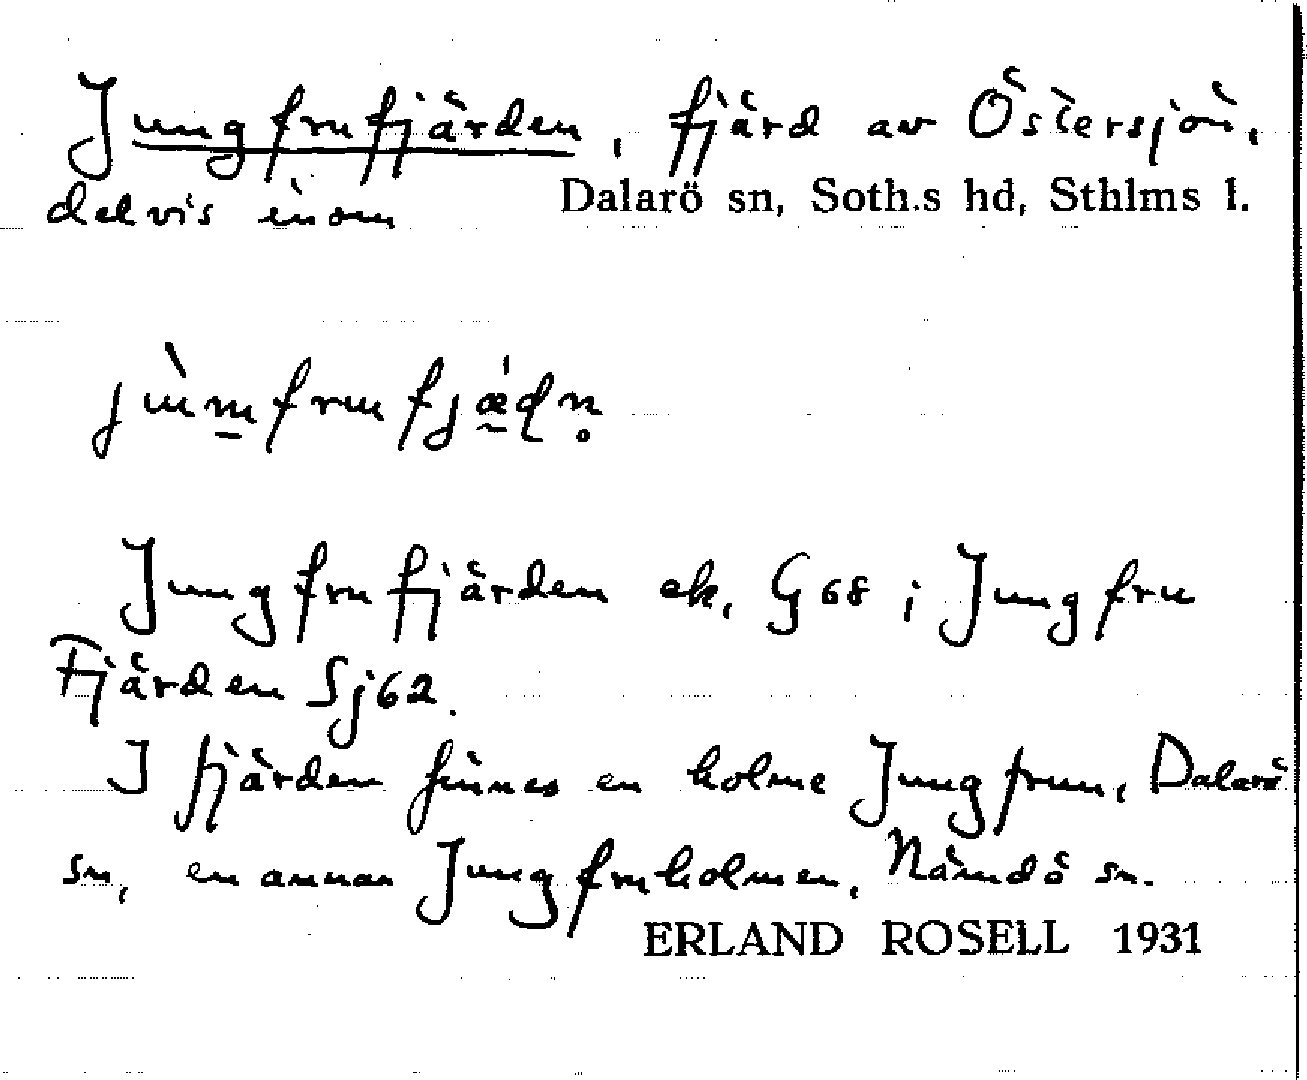 Jungfrufjärden, fjärd av Östersjön,
delvis inom Dalarö sn, Soth.s hd, Sthlms l.
jùm̲frufjǽ̰dn̥
Jungfrufjärden ek. G68 ; Jungfru
Fjärden Sj62.
I fjärden finnes en holme Jungfrun, Dalarö
sn, en annan Jungfruholmen, Nämdö sn.
ERLAND ROSELL 1931